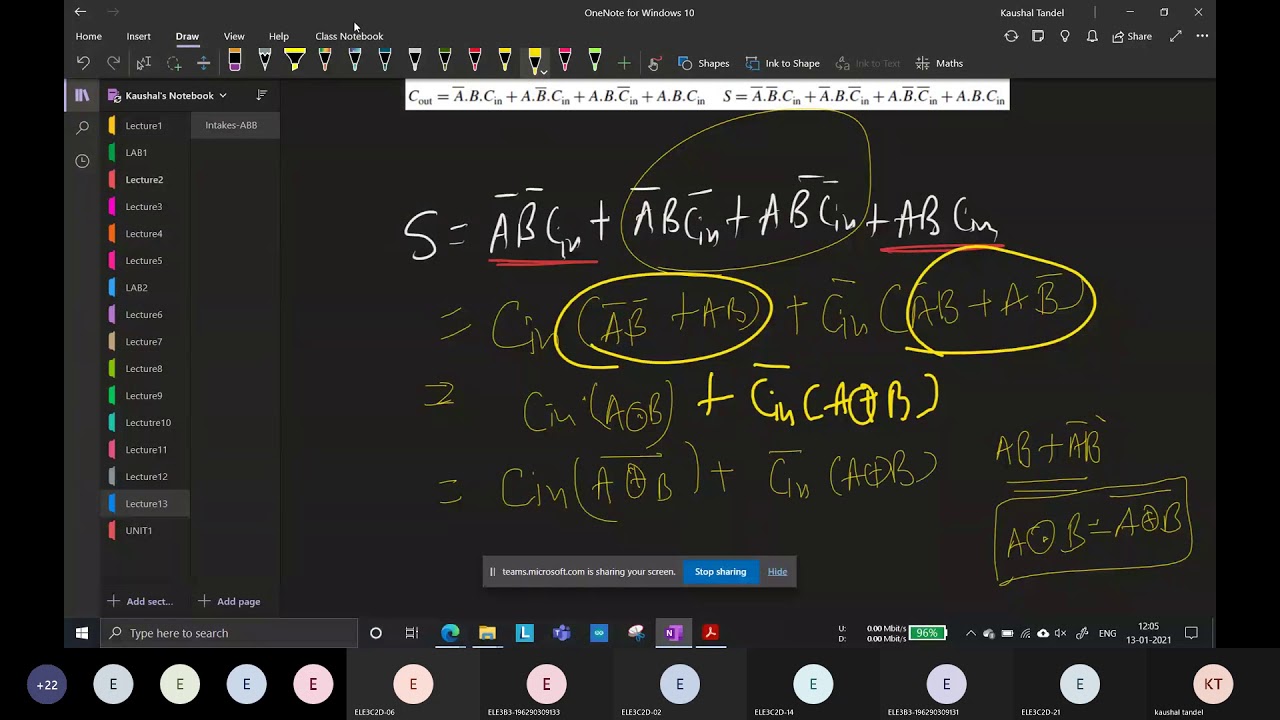 OneNote for Windows 10
Kaushal Tandel
Home Insert Draw View Help Class Notebook
Share
Shapes Ink to Shape Ink to Text Maths
Kaushal's Notebook
Intakes-ABB
Lecture1
LAB1
Lecture2
Lecture3
Lecture4
Lecture5
LAB2
Lecture6
Lecture7
Lecture8
Lecture9
Lectutre10
Lecture11
Lecture12
Lecture13
UNIT1
Add sect...
Add page
C_out = A̅.B.C_in + A.B̅.C_in + A.B.C̅_in + A.B.C_in S = A̅.B̅.C_in + A̅.B.C̅_in + A.B̅.C̅_in + A.B.C_in
S = A̅ B̅ C_in + A̅ B C̅_in + A B̅ C̅_in + A B C_in
= C_in (A̅ B̅ + AB) + C̅_in (A̅B + A B̅)
= C_in.(A⊙B) + C̅_in (A⊕B)
= C_in (A̅⊕̅B̅) + C̅_in (A⊕B)
AB + A̅B̅
A⊙B = A̅⊕̅B̅
teams.microsoft.com is sharing your screen. Stop sharing Hide
Type here to search
U: 0.00 Mbit/s
D: 0.00 Mbit/s
96%
ENG
12:05
13-01-2021
+22 E E E E E E E E E E KT
ELE3C2D-06 ELE3B3-196290309133 ELE3C2D-02 ELE3C2D-14 ELE3B3-196290309131 ELE3C2D-21 kaushal tandel